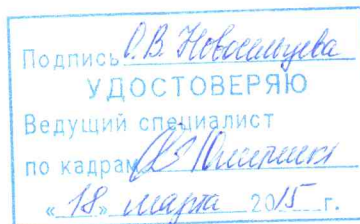 Подпись О.В. Новосельцева
УДОСТОВЕРЯЮ
Ведущий специалист
по кадрам
«18» марта 2015 г.